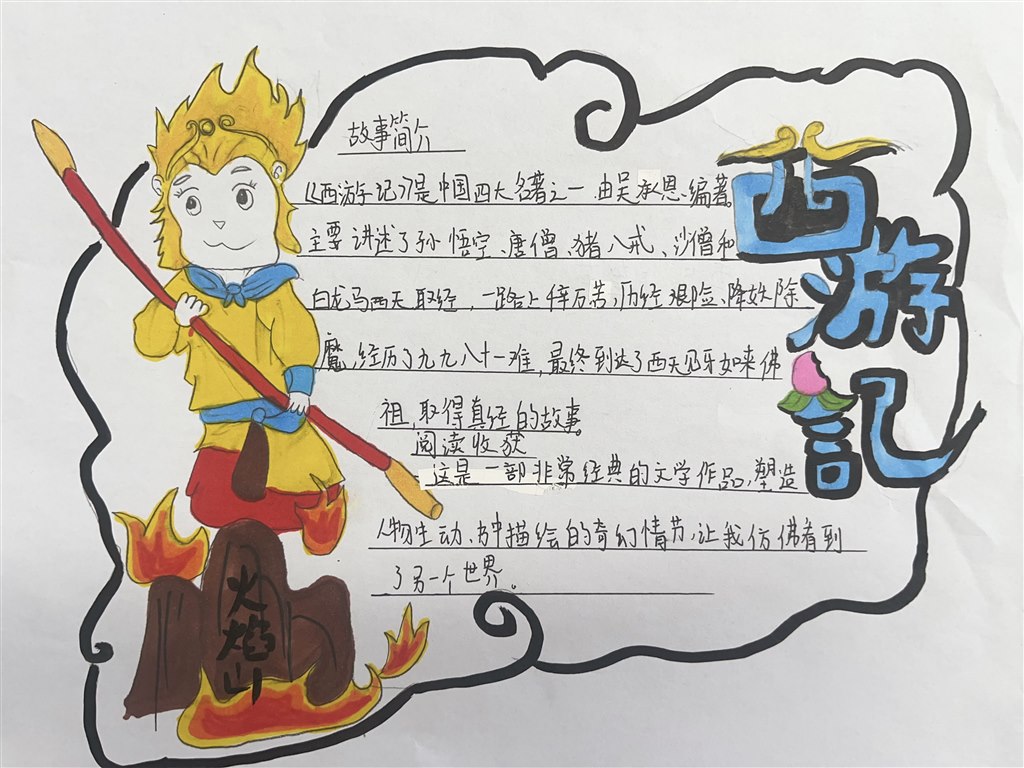 西游記
故事简介
《西游记》是中国四大名著之一 由吴承恩编著。
主要讲述了孙悟空、唐僧、猪八戒、沙僧和
白龙马西天取经，一路上千辛万苦，历经艰险、降妖除
魔，经历了九九八十一难，最终到达了西天见牙如来佛
祖，取得真经的故事。
阅读收获
这是一部非常经典的文学作品，塑造
人物生动、书中描绘的奇幻情节，让我仿佛看到
了另一个世界。
火焰山